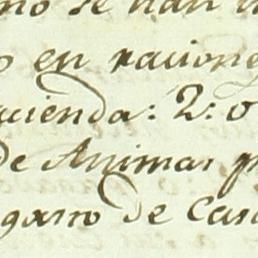 mo se han
en racione
cienda: 2: o
de Animas p
garro de Cas